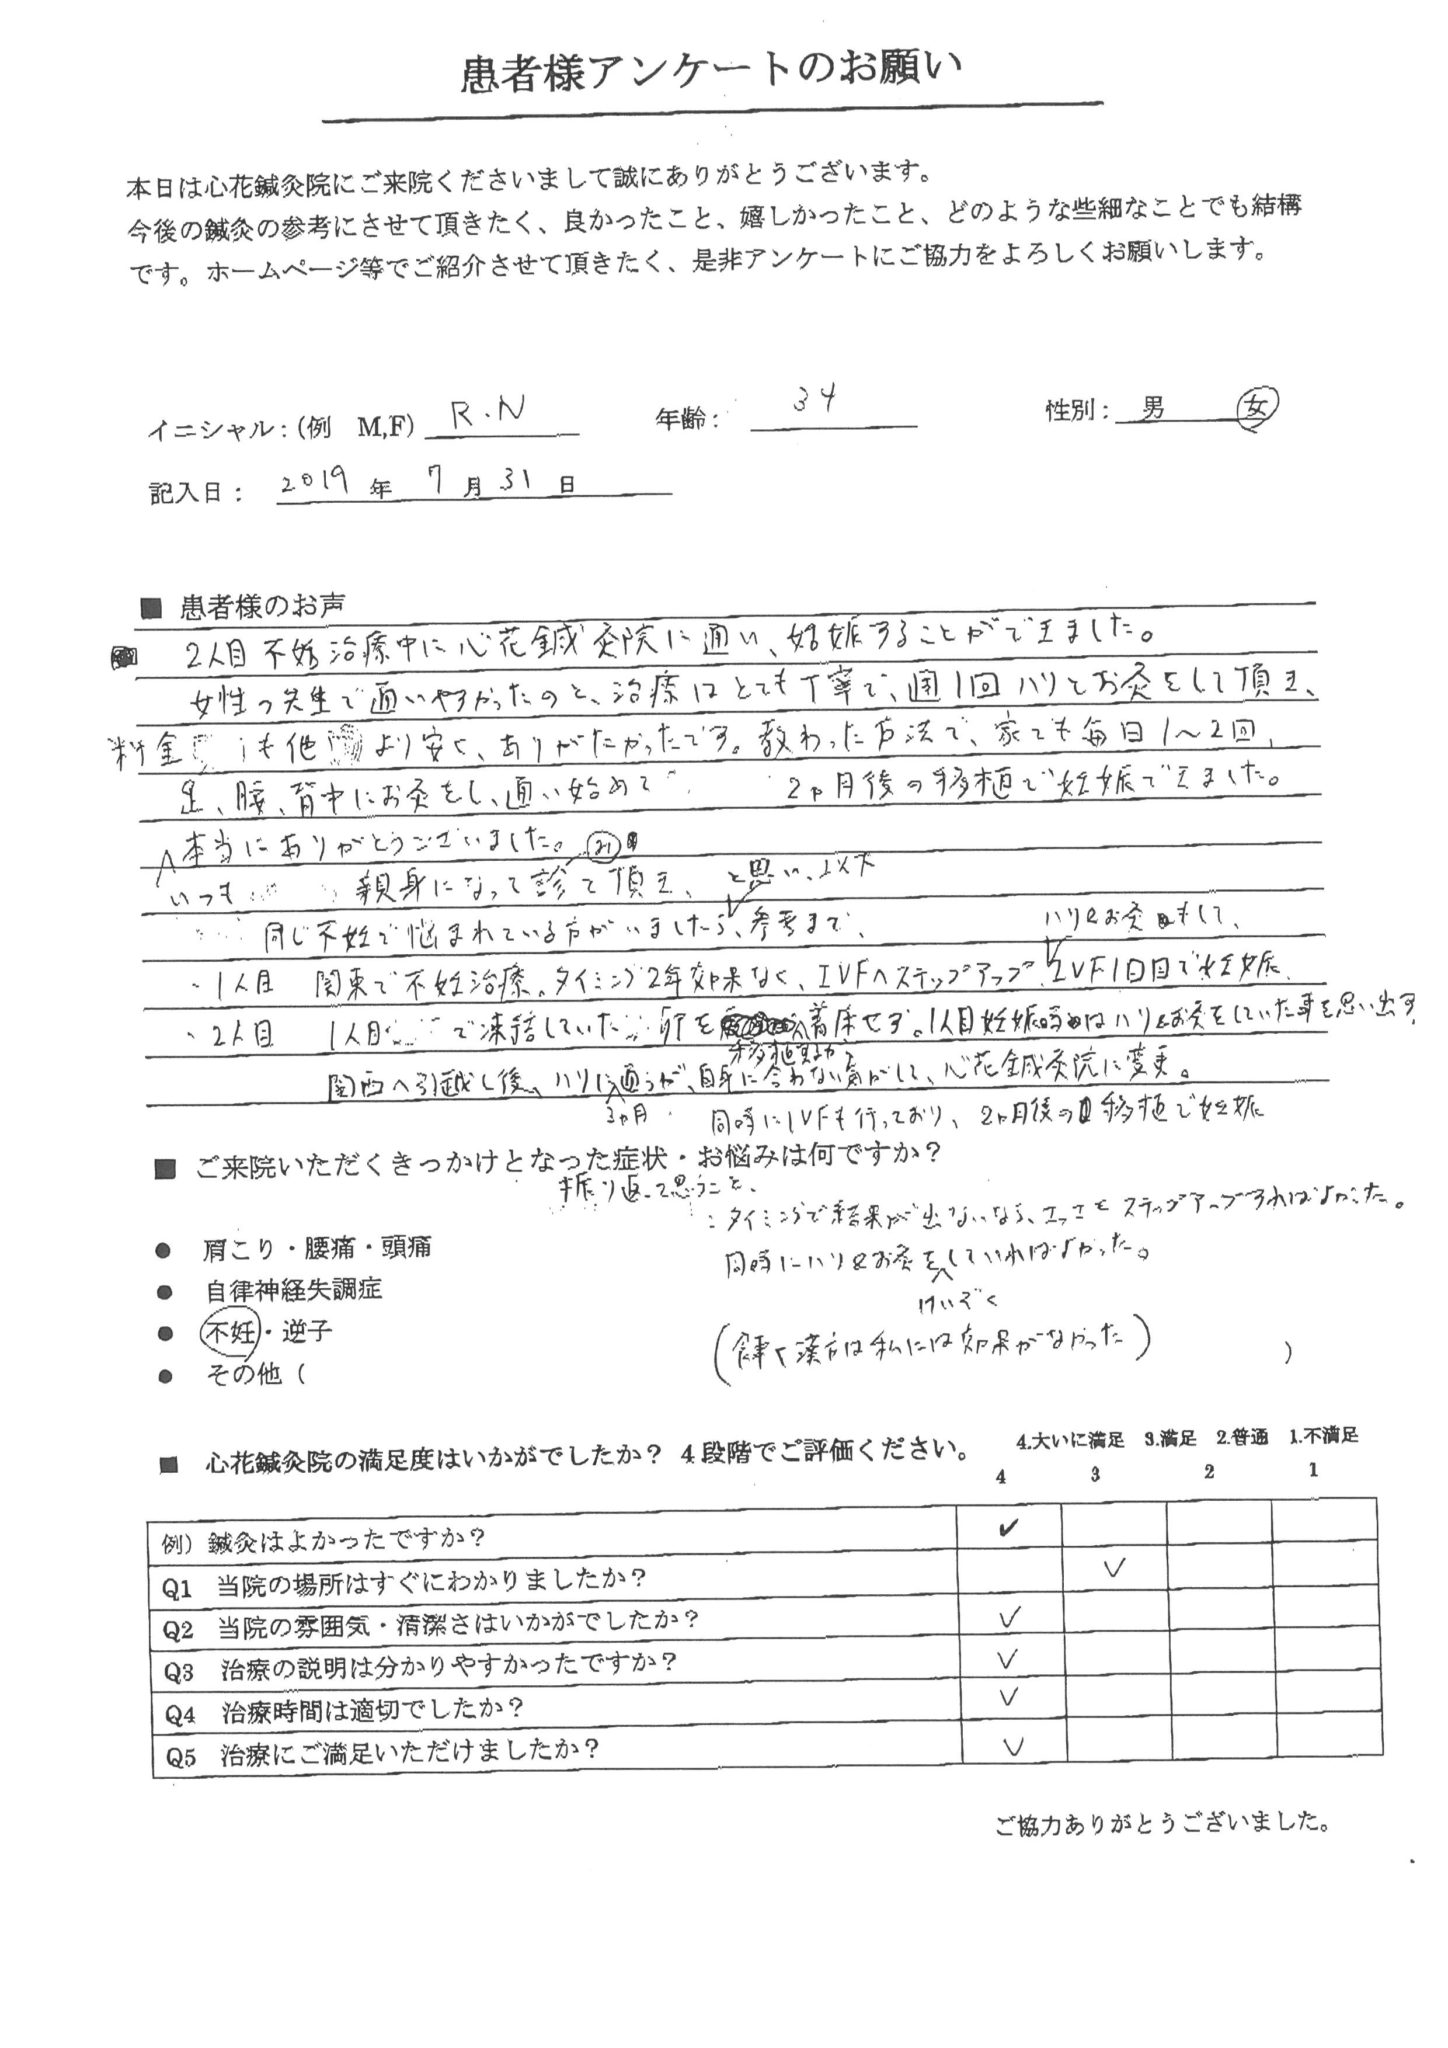 患者様アンケートのお願い
本日は心花鍼灸院にご来院くださいまして誠にありがとうございます。
今後の鍼灸の参考にさせて頂きたく、良かったこと、嬉しかったこと、どのような些細なことでも結構
です。ホームページ等でご紹介させて頂きたく、是非アンケートにご協力をよろしくお願いします。
イニシャル：(例 M,F) R.N 年齢： 34 性別： 男 女
記入日： 2019 年 7 月 31 日
■ 患者様のお声
2人目不妊治療中に心花鍼灸院に通い、妊娠することができました。
女性の先生で通いやすかったのと、治療はとても丁寧で、週1回ハリとお灸をして頂き、
料金も他より安く、ありがたかったです。教わった方法で、家でも毎日1〜2回、
足、腰、背中にお灸をし、通い始めて 2ヶ月後の移植で妊娠できました。
本当にありがとうございました。
いつも 親身になって診て頂き、 と思い、以下
同じ不妊で悩まれている方がいましたら、参考まで、
ハリ&お灸もして、
・1人目 関東で不妊治療。タイミング2年効果なく、IVFへステップアップ IVF1回目で妊娠
・2人目 1人目 で凍結していた 卵を 着床せず。1人目妊娠時はハリ&お灸をしていた事を思い出す
移植するが
関西へ引越し後、ハリに通うが、自身に合わない気がして、心花鍼灸院に変更。
3ヶ月
同時にIVFも行っており、2ヶ月後の移植で妊娠
■ ご来院いただくきっかけとなった症状・お悩みは何ですか？
振り返って思うこと、
：タイミングで結果が出ないなら、さっさとステップアップすればよかった。
● 肩こり・腰痛・頭痛
同時にハリ&お灸をしていればよかった。
けいぞく
● 自律神経失調症
● 不妊・逆子
(漢方は私には効果がなかった)
● その他（ ）
■ 心花鍼灸院の満足度はいかがでしたか？ 4段階でご評価ください。 4.大いに満足 3.満足 2.普通 1.不満足
4 3 2 1
例）鍼灸はよかったですか？ ✓
Q1 当院の場所はすぐにわかりましたか？ ✓
Q2 当院の雰囲気・清潔さはいかがでしたか？ ✓
Q3 治療の説明は分かりやすかったですか？ ✓
Q4 治療時間は適切でしたか？ ✓
Q5 治療にご満足いただけましたか？ ✓
ご協力ありがとうございました。